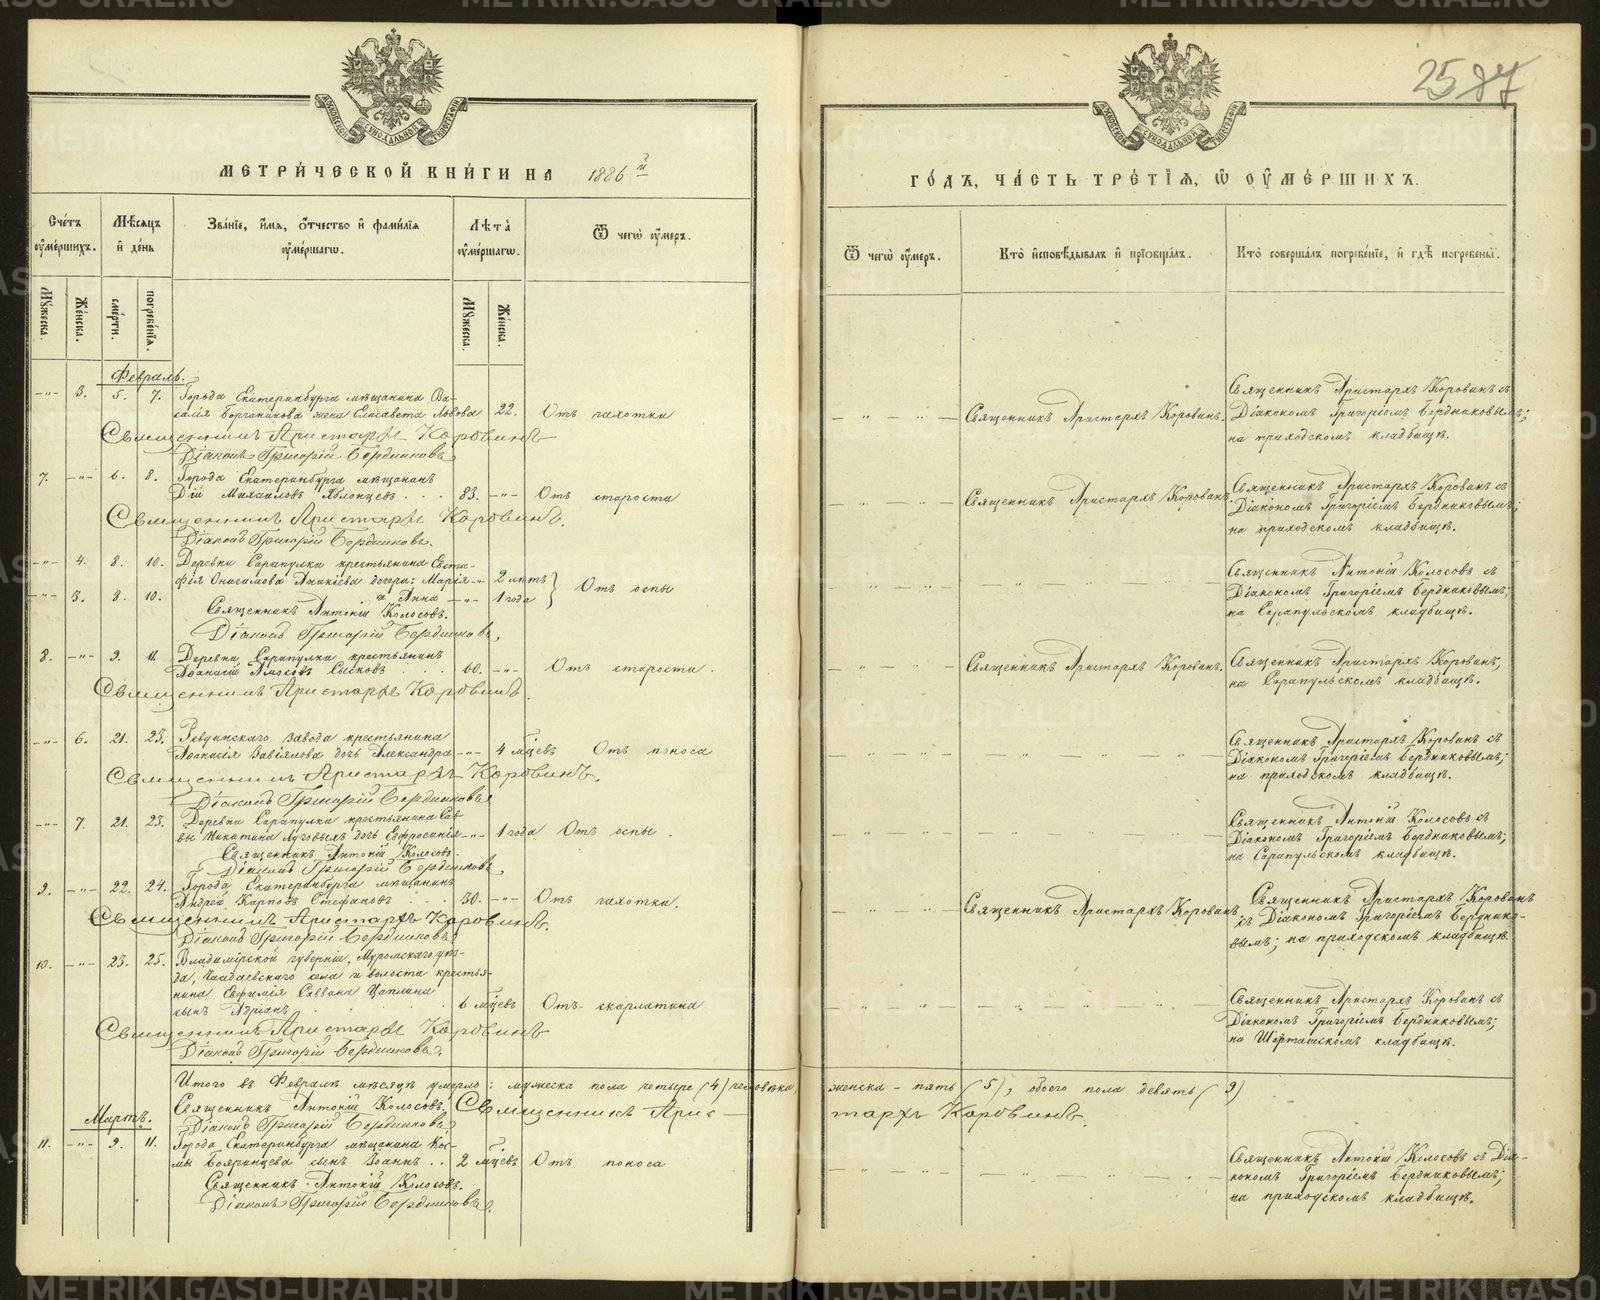 МЕТРИЧЕСКОЙ КНИГИ НА 1886 й
Счетъ умершихъ.
Мѣсяцъ и день
Званіе, имя, отчество и фамилія умершаго.
Лѣта умершаго.
Ѿ чегѡ умеръ.
Мужеска.
Женска.
смерти.
погребенія.
Мужеска.
Женска.
Февраль.
3. 5. 7. Города Екатеринбурга мѣщанина Ва-
жена Елисавета Львова 22. Отъ чахотки
Священникъ Аристархъ Коровинъ
Діаконъ Григорій Бердниковъ
7. 6. 8. Города Екатеринбурга мѣщанинъ
Дій Михаиловъ Яблонцевъ . . . 83. Отъ старости
Священникъ Аристархъ Коровинъ.
Діаконъ Григорій Бердниковъ.
4. 8. 10. Деревни Сарапулки крестьянина Евста-
фія Онисимова Аникіева дочери: Марія 2 лѣтъ } Отъ оспы
5. 8. 10. и Анна 1 года
Священникъ Антоній Колосовъ.
Діаконъ Григорій Бердниковъ.
8. 9. 11. Деревни Сарапулки крестьянинъ
60. Отъ старости.
Священникъ Аристархъ Коровинъ.
6. 21. 23. Ревдинскаго завода крестьянина
Аѳанасія Завьялова дочь Александра 4 мѣсяцевъ Отъ поноса
Священникъ Аристархъ Коровинъ.
Діаконъ Григорій Бердниковъ
7. 21. 23. Деревни Сарапулки крестьянина Сав-
вы Никитина Луговыхъ дочь Ефросинія 1 года Отъ оспы.
Священникъ Антоній Колосовъ.
Діаконъ Григорій Бердниковъ.
9. 22. 24. Города Екатеринбурга мѣщанинъ
Андрей Карповъ Стефановъ . . . 50. Отъ чахотки.
Священникъ Аристархъ Коровинъ.
Діаконъ Григорій Бердниковъ.
10. 23. 25. Владимірской губерніи, Муромскаго уѣз-
да, Чаадаевскаго села и волости крестья-
нина Ефимія Саввина Цаплина
сынъ Адріанъ 6 мѣсяцевъ Отъ скарлатина
Священникъ Аристархъ Коровинъ
Діаконъ Григорій Бердниковъ.
Итого въ Февралѣ мѣсяцѣ умерло: мужеска пола четыре (4) человѣка,
Священникъ Антоній Колосовъ. Священникъ Арис-
Діаконъ Григорій Бердниковъ
Мартъ.
11. 9. 11. Города Екатеринбурга мѣщанина Кос-
мы Бояринцева сынъ Іоаннъ . . 2 мѣсяцевъ Отъ поноса
Священникъ Антоній Колосовъ.
Діаконъ Григорій Бердниковъ.
ГОДЪ, ЧАСТЬ ТРЕТІЯ, Ѡ УМЕРШИХЪ.
Ѿ чегѡ умеръ.
Кто исповѣдывалъ и пріобщалъ.
Кто совершалъ погребеніе, и гдѣ погребены.
Священникъ Аристархъ Коровинъ.
Священникъ Аристархъ Коровинъ съ
Діакономъ Григоріемъ Бердниковымъ;
на приходскомъ кладбищѣ.
Священникъ Аристархъ Коровинъ.
Священникъ Аристархъ Коровинъ съ
Діакономъ Григоріемъ Бердниковымъ;
на приходскомъ кладбищѣ.
Священникъ Антоній Колосовъ съ
Діакономъ Григоріемъ Бердниковымъ;
на Сарапульскомъ кладбищѣ.
Священникъ Аристархъ Коровинъ.
Священникъ Аристархъ Коровинъ;
на Сарапульскомъ кладбищѣ.
Священникъ Аристархъ Коровинъ съ
Діакономъ Григоріемъ Бердниковымъ;
на приходскомъ кладбищѣ.
Священникъ Антоній Колосовъ съ
Діакономъ Григоріемъ Бердниковымъ;
на Сарапульскомъ кладбищѣ.
Священникъ Аристархъ Коровинъ.
Священникъ Аристархъ Коровинъ
съ Діакономъ Григоріемъ Берднико-
вымъ; на приходскомъ кладбищѣ.
Священникъ Аристархъ Коровинъ съ
Діакономъ Григоріемъ Бердниковымъ;
на Шарташскомъ кладбищѣ.
женска - пять (5), обоего пола девять (9)
тархъ Коровинъ.
Священникъ Антоній Колосовъ съ Діа-
кономъ Григоріемъ Бердниковымъ;
на приходскомъ кладбищѣ.
METRIKI.GASO-URAL.RU